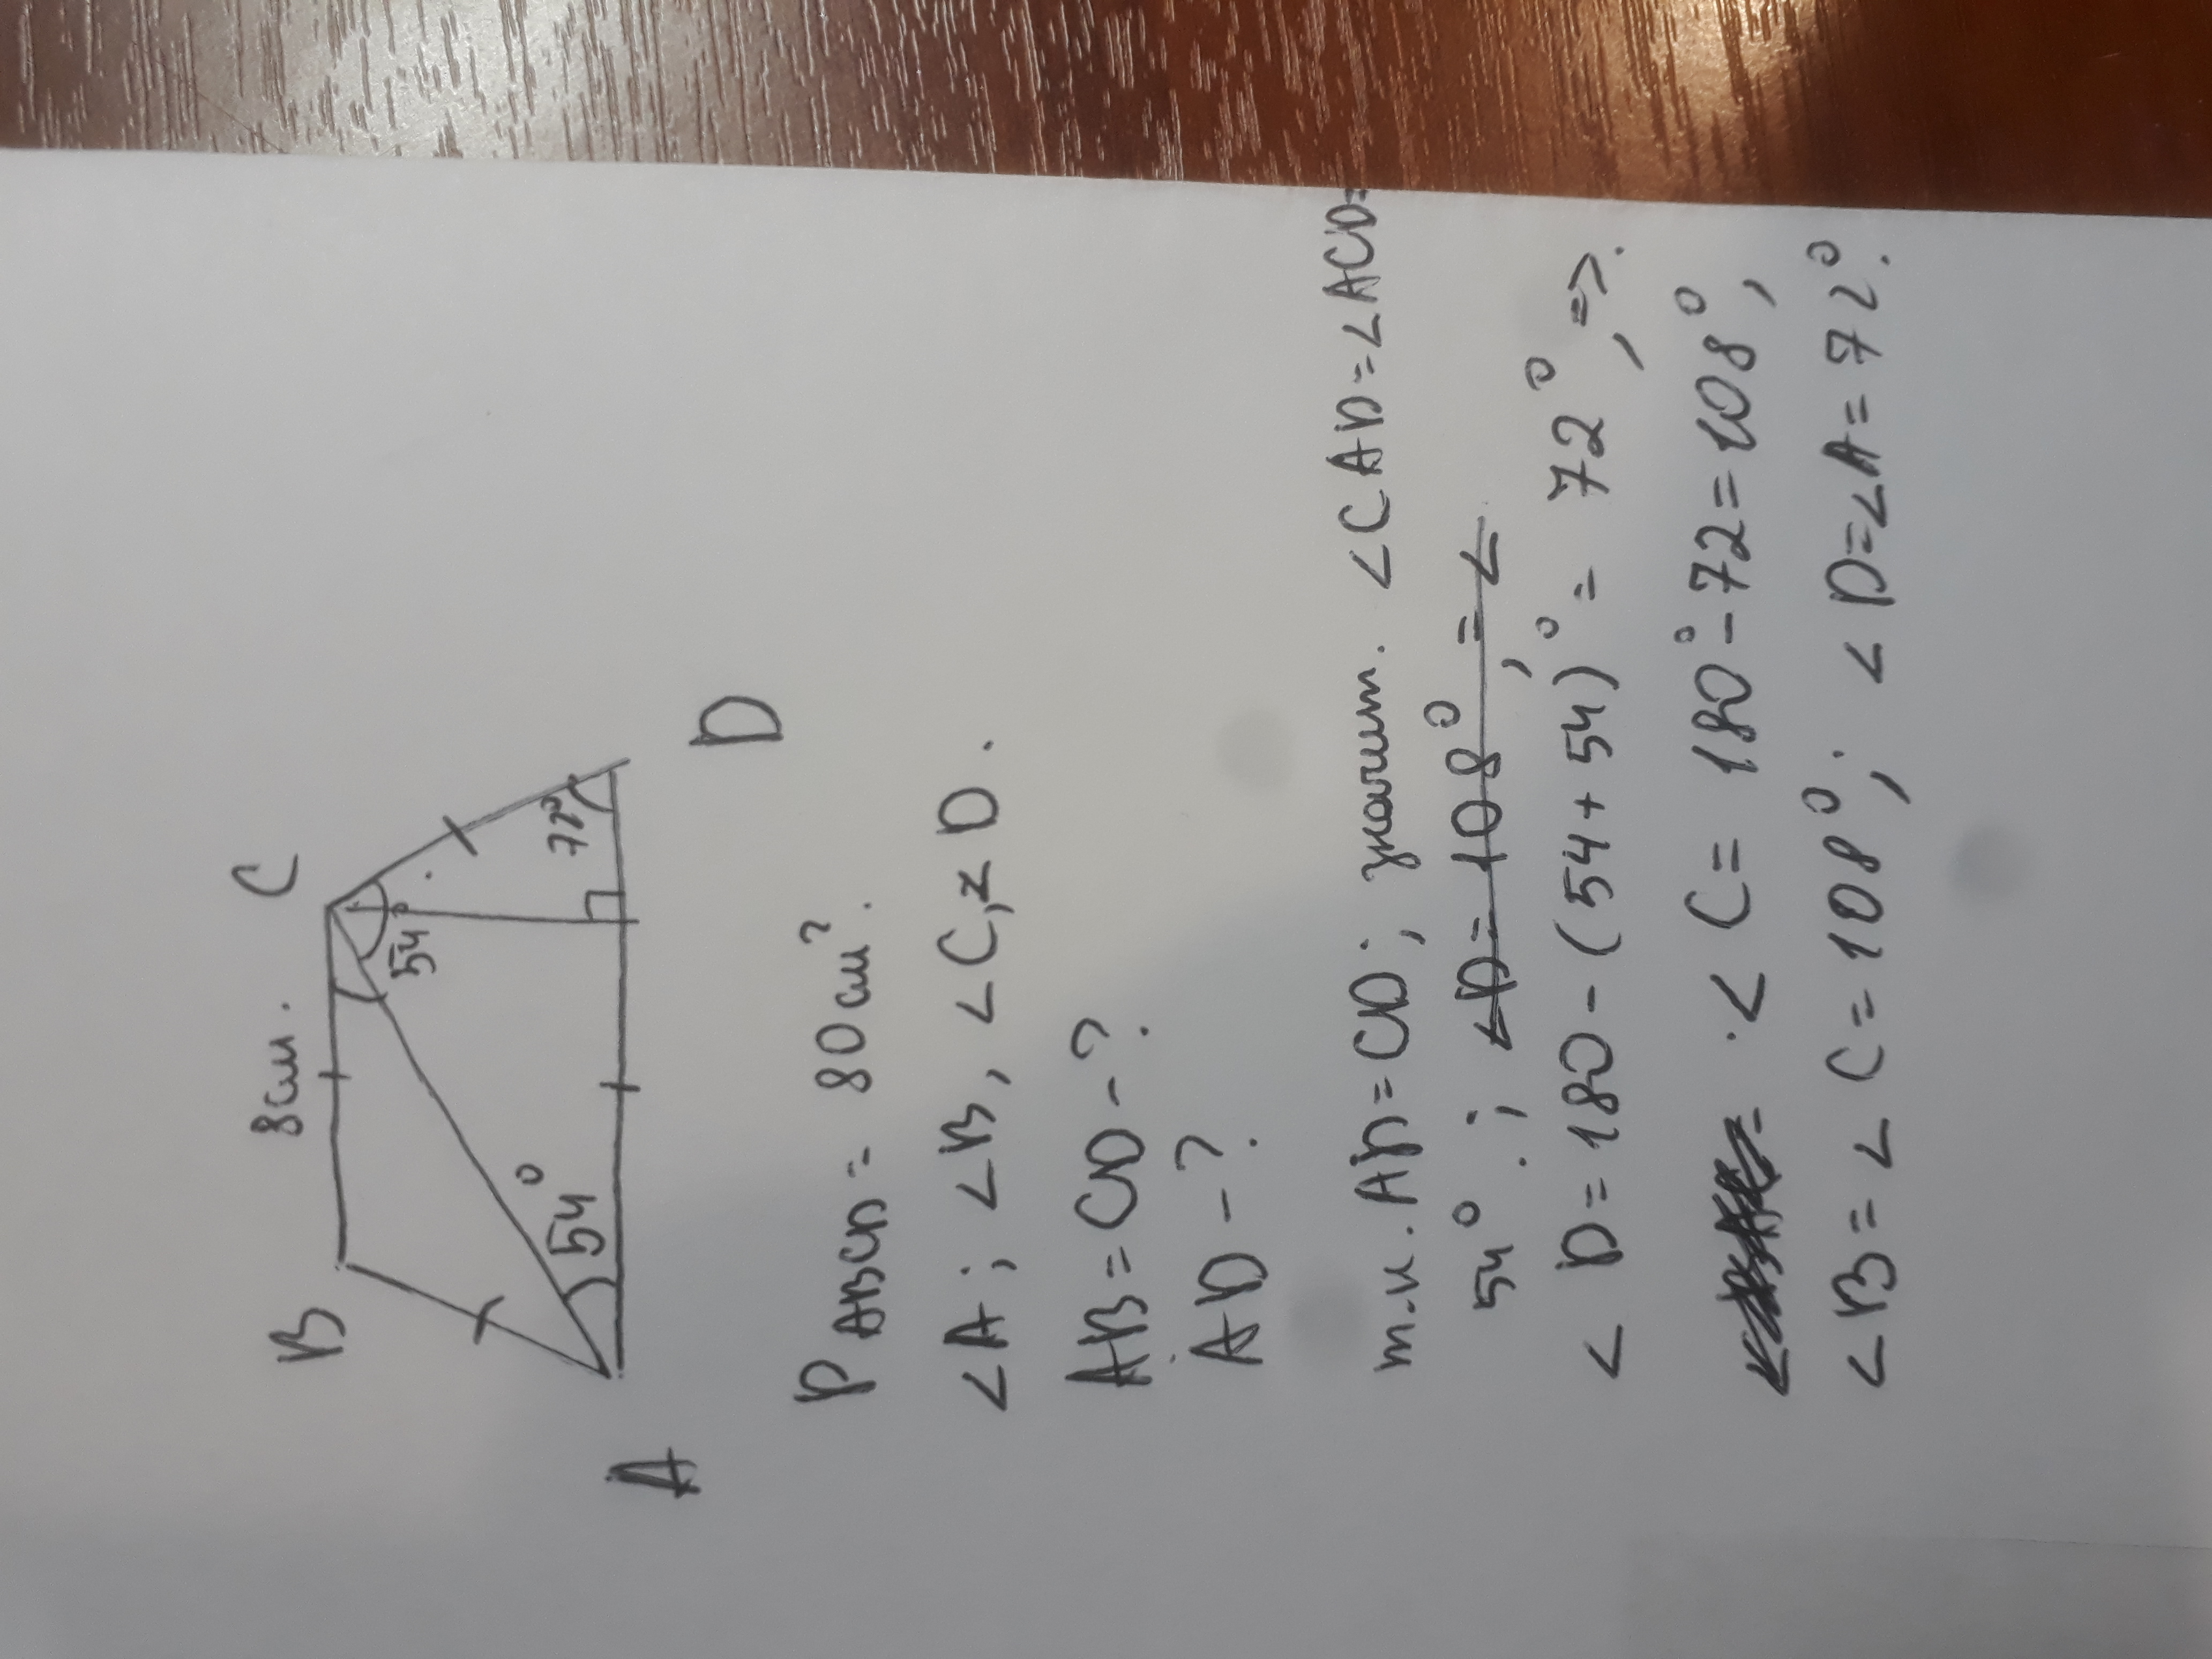 8см.
B
C
54
72°
54°
A
D
P ABCD = 80 см².
<A; <B, <C, < D.
AB = CD - ?
AD - ?
т.к. AD = CD; значит. <CAD = <ACD =
54°.; <D = 108°, = <
<D = 180 - (54 + 54)° = 72°, =>.
.< C = 180° - 72 = 108°,
<B = < C = 108°; < D = <A = 72°.